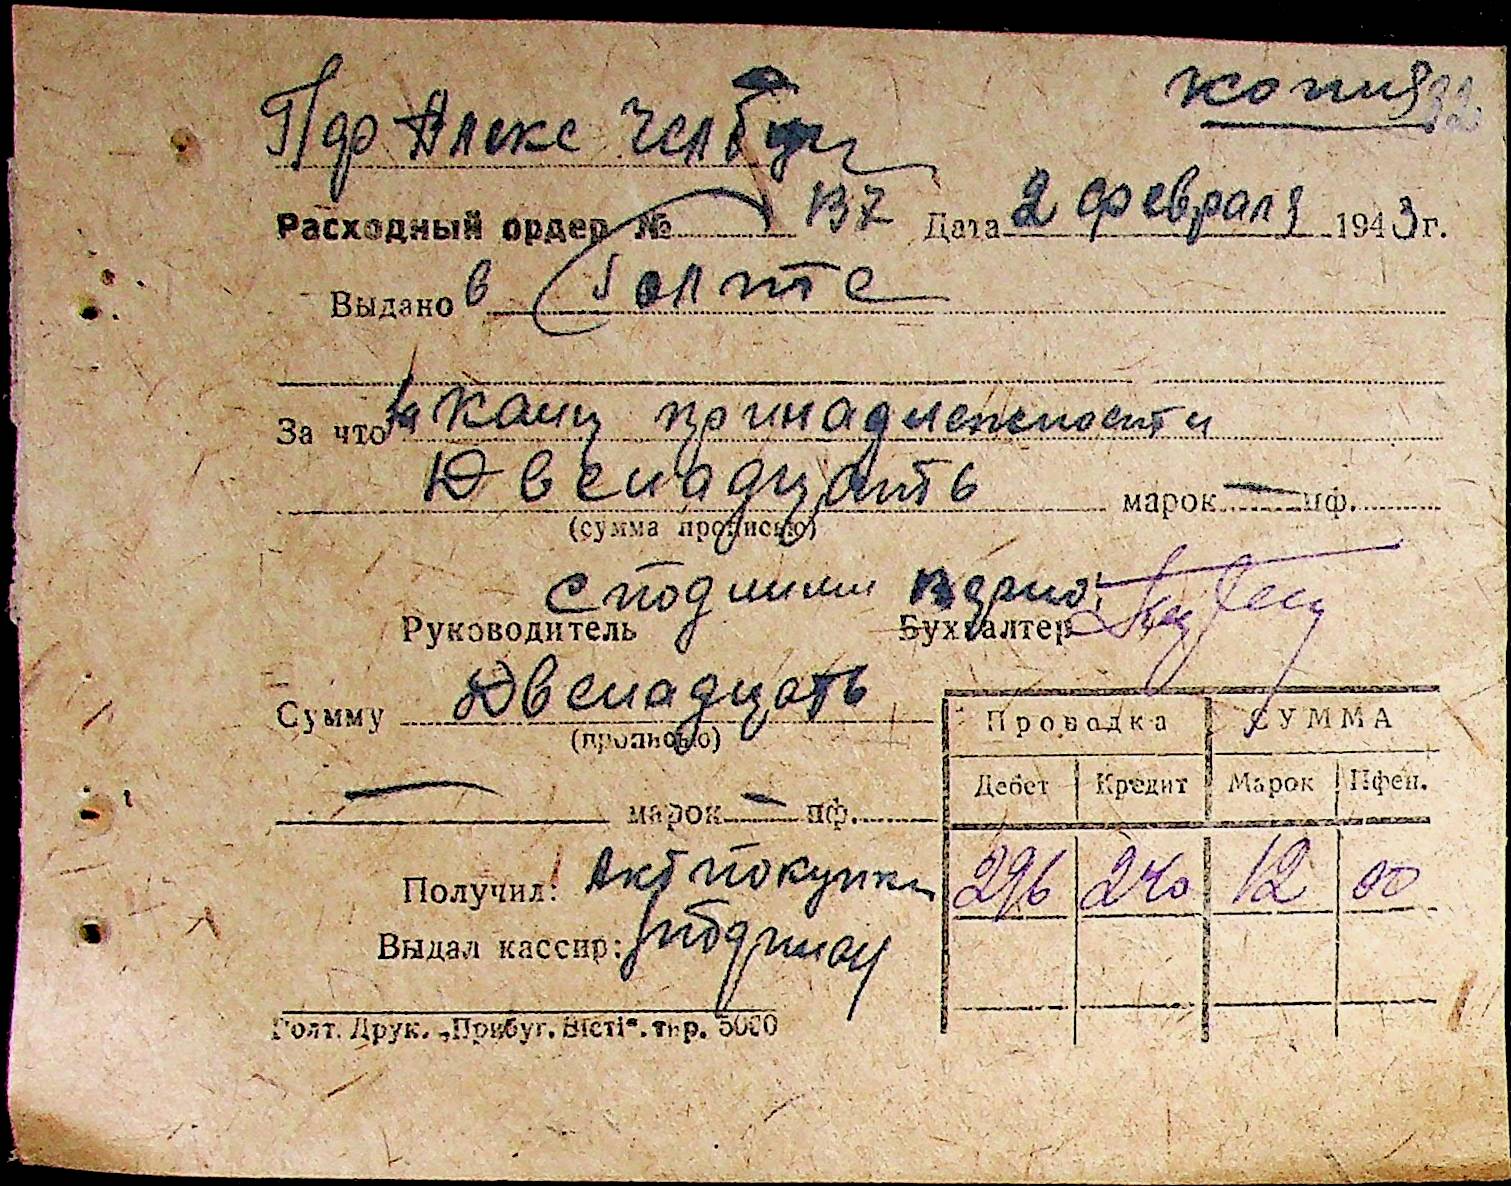 копия 32
Пдр Алекс
Расходный ордер № 137 Дата 2 февраля 1943 г.
Выдано в Голте
За что за канц принадлежности
Двенадцать марок — пф.
(сумма прописью)
с подлин верно:
Руководитель Бухгалтер
Сумму Двенадцать
(прописью)
Проводка СУММА
Дебет Кредит Марок Пфен.
— марок — пф.
Получил: Акт покупки 296 240 12 00
Выдал кассир:
Голт. Друк. „Прибуг. Вісті“. тир. 5000